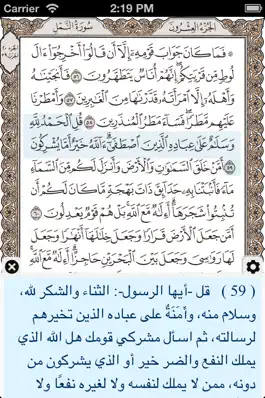 Carrier 2:19 PM
سُورَةُ النَّمْلِ الجُزْءُ العِشْرُونَ
۞ فَمَا كَانَ جَوَابَ قَوْمِهِۦٓ إِلَّآ أَن قَالُوٓا۟ أَخْرِجُوٓا۟ ءَالَ
لُوطٍ مِّن قَرْيَتِكُمْ إِنَّهُمْ أُنَاسٌ يَتَطَهَّرُونَ ٥٦ فَأَنجَيْنَٰهُ
وَأَهْلَهُۥٓ إِلَّا ٱمْرَأَتَهُۥ قَدَّرْنَٰهَا مِنَ ٱلْغَٰبِرِينَ ٥٧ وَأَمْطَرْنَا
عَلَيْهِم مَّطَرًا فَسَآءَ مَطَرُ ٱلْمُنذَرِينَ ٥٨ قُلِ ٱلْحَمْدُ لِلَّهِ
وَسَلَٰمٌ عَلَىٰ عِبَادِهِ ٱلَّذِينَ ٱصْطَفَىٰٓ ءَآللَّهُ خَيْرٌ أَمَّا يُشْرِكُونَ ٥٩
أَمَّنْ خَلَقَ ٱلسَّمَٰوَٰتِ وَٱلْأَرْضَ وَأَنزَلَ لَكُم مِّنَ ٱلسَّمَآءِ
مَآءً فَأَنۢبَتْنَا بِهِۦ حَدَآئِقَ ذَاتَ بَهْجَةٍ مَّا كَانَ لَكُمْ أَن
تُنۢبِتُوا۟ شَجَرَهَآ أَءِلَٰهٌ مَّعَ ٱللَّهِ بَلْ هُمْ قَوْمٌ يَعْدِلُونَ ٦٠
أَمَّن جَعَلَ ٱلْأَرْضَ قَرَارًا وَجَعَلَ خِلَٰلَهَآ أَنْهَٰرًا وَجَعَلَ
لَهَا رَوَٰسِىَ وَجَعَلَ بَيْنَ ٱلْبَحْرَيْنِ حَاجِزًا أَءِلَٰهٌ مَّعَ ٱللَّهِ
( 59 ) قل -أيها الرسول-: الثناء والشكر لله،
وسلام منه، وأَمَنَةٌ على عباده الذين تخيرهم
لرسالته، ثم اسأل مشركي قومك هل الله الذي
يملك النفع والضر خير أو الذي يشركون من
دونه، ممن لا يملك لنفسه ولا لغيره نفعًا ولا